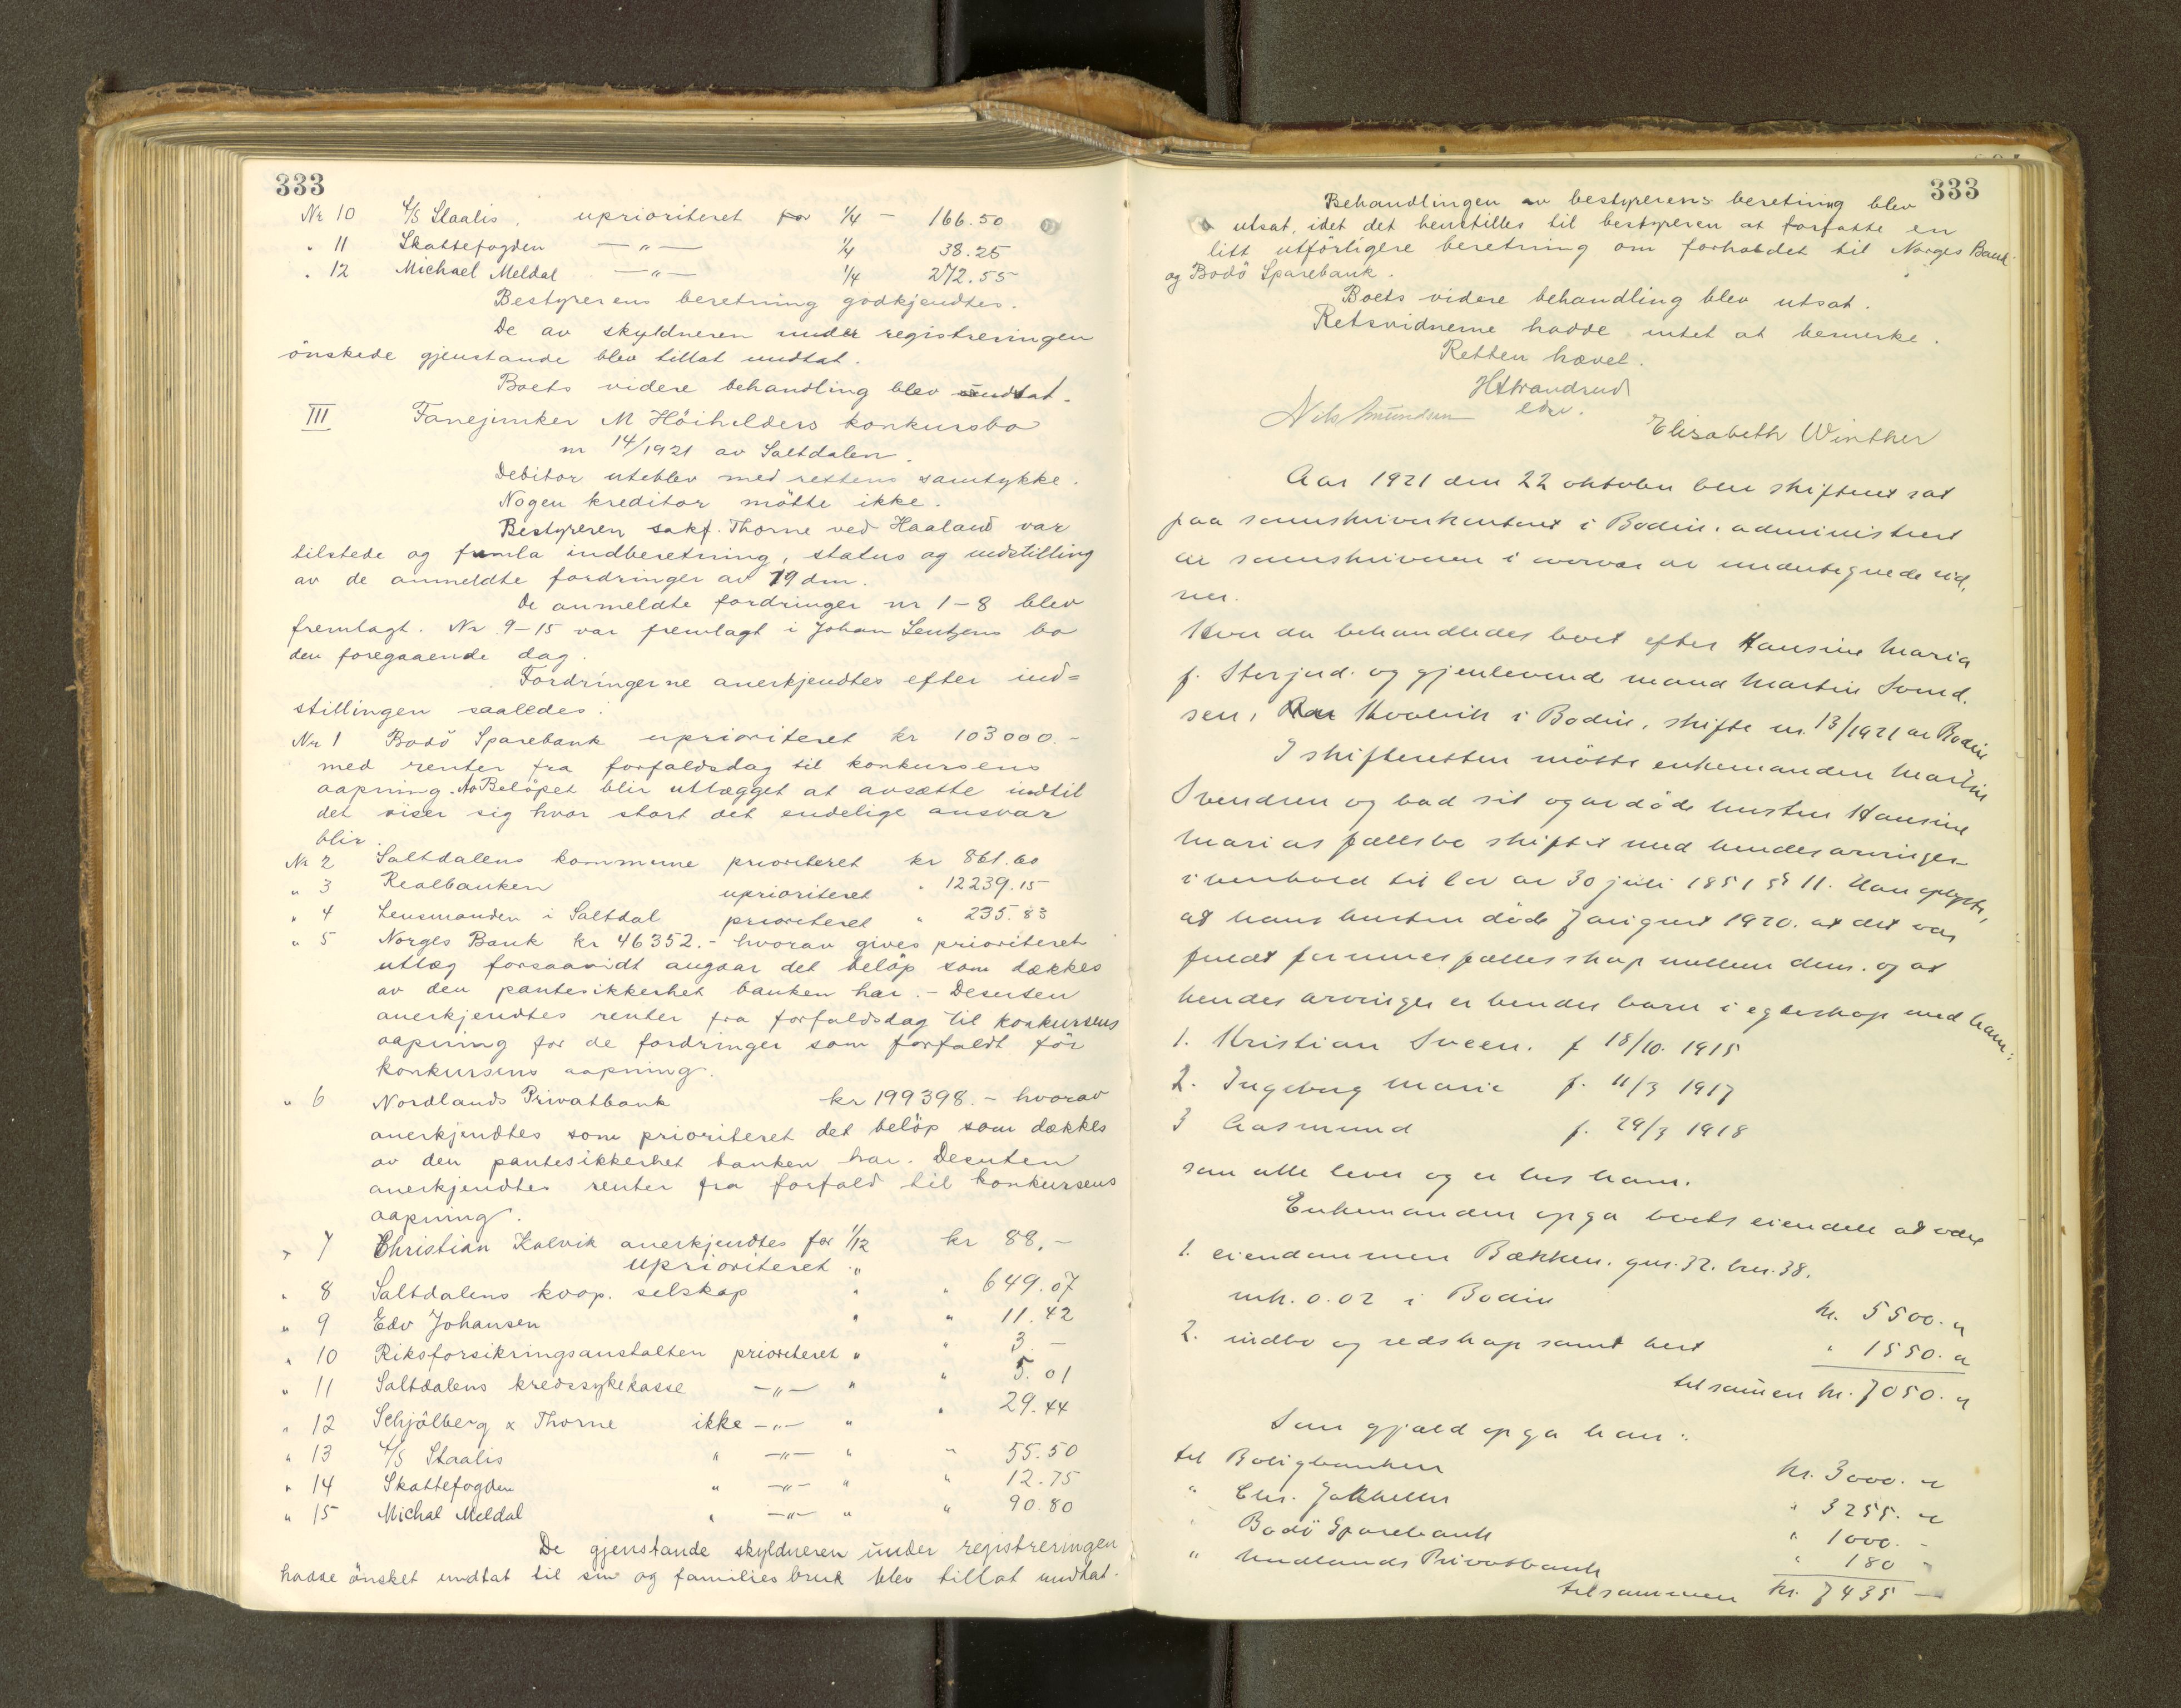 333
Nr 10 A/S Staalis. uprioriteret for 1/4 - 166.50
" 11 Skattefogden -"- 1/4 38.25
" 12 Michael Meldal -"- 1/4 272.55
Bestyrerens beretning godkjendtes.
De av skyldneren under registreringen
önskede gjenstande blev tillat undtat.
Boets videre behandling blev utsat.
III Fanejunker M Höihilders konkursbo
nr 14/1921 av Saltdalen.
Debitor uteblev med rettens samtykke.
Nogen kreditor mötte ikke.
Bestyreren sakf. Thorne ved Haaland var
tilstede og fremla indberetning, status og indstilling
av de anmeldte fordringer av 19 dm.
De anmeldte fordringer nr 1-8 blev
fremlagt. Nr 9-15 var fremlagt i Johan Lentzens bo
den foregaaende dag.
Fordringerne anerkjendtes efter ind=
stillingen saaledes:
Nr 1 Bodö Sparebank uprioriteret kr 103000.-
med renter fra forfaldsdag til konkursens
aapning. Beløpet blir utlægget at avsætte indtil
det viser sig hvor stort det endelige ansvar
blir.
Nr 2 Saltdalens kommune prioriteret kr 861.60
" 3 Realbanken uprioriteret " 12239.15
" 4 Lensmanden i Saltdal prioriteret " 235.83
" 5 Norges Bank kr 46352.- hvorav gives prioriteret
utlæg forsaavidt angaar det belöp som dækkes
av den pantesikkerhet banken har. - Desuten
anerkjendtes renter fra forfaldsdag til konkursens
aapning for de fordringer som forfaldt för
konkursens aapning.
" 6 Nordlands Privatbank kr 199398.- hvorav
anerkjendtes som prioriteret det belöp som dækkes
av den pantesikkerhet banken har. Desuten
anerkjendtes renter fra forfald til konkursens
aapning.
" 7 Christian Kalvik anerkjendtes for 1/12 kr 88,-
uprioriteret "
" 8 Saltdalens koop. selskap " " 649.07
" 9 Edv Johansen " " 11.42
" 10 Riksforsikringsanstalten prioriteret " " 3.-
" 11 Saltdalens kredssykekasse -"- " " 5.01
" 12 Schjölberg & Thorne ikke -"- " " 29.44
" 13 A/S Staalis " -"- " " 55.50
" 14 Skattefogden " -"- " " 12.75
" 15 Michal Meldal " -"- " " 90.80
De gjenstande skyldneren under registreringen
hadde önsket undtat til sin og families bruk blev tillat undtat.
333
Behandlingen av bestyrerens beretning blev
utsat, idet det henstilles til bestyreren at forfatte en
litt utförligere beretning om forholdet til Norges Bank
og Bodö Sparebank.
Boets videre behandling blev utsat.
Retsvidnerne hadde intet at bemerke.
Retten hævet.
H Strandrud
edv.
Nils Amundsen
Elisabeth Winther
Aar 1921 den 22 oktober blev skifteret sat
paa sorenskriverkontoret i Bodin, administrert
av sorenskriveren i overvær av undertegnede vid,
ner.
Hvor da behandledes boet efter Hansine Maria
f. Storjord. og gjenlevende mand Martin Svend,
sen, Kvalvik i Bodin, skifte nr. 13/1921 av Bodin
I skifteretten mötte enkemanden Martin
Svendsen og bad sit og avdöde hustru Hansine
Marias fællesbo skiftet med hendes arvinger
i henhold til lov av 30 juli 1851 § 11. Han oplyste,
at hans hustru döde 7 august 1920. at det var
fuldt formuesfællesskap mellem dem. og at
hendes arvinger er hendes barn i egteskap med ham:
1. Kristian Sveen. f 18/10. 1915
2. Ingeborg Marie f. 11/3 1917
3 Aasmund f. 29/3 1918
som alle lever og er hos ham.
Enkemanden opga boets eiendele at være
1. eiendommen Bækken. gnr. 32. bnr. 38.
mk. 0.02 i Bodin kr. 5500. "
2. indbo og redskap samt hest " 1550. "
tilsammen kr. 7050. "
Som gjæld opga han:
til Boligbanken kr. 3000. "
" Chr. Jakhelln " 3255. "
" Bodö Sparebank " 1000. -
" Nordlands Privatbank " 180 "
tilsammen kr. 7435 -